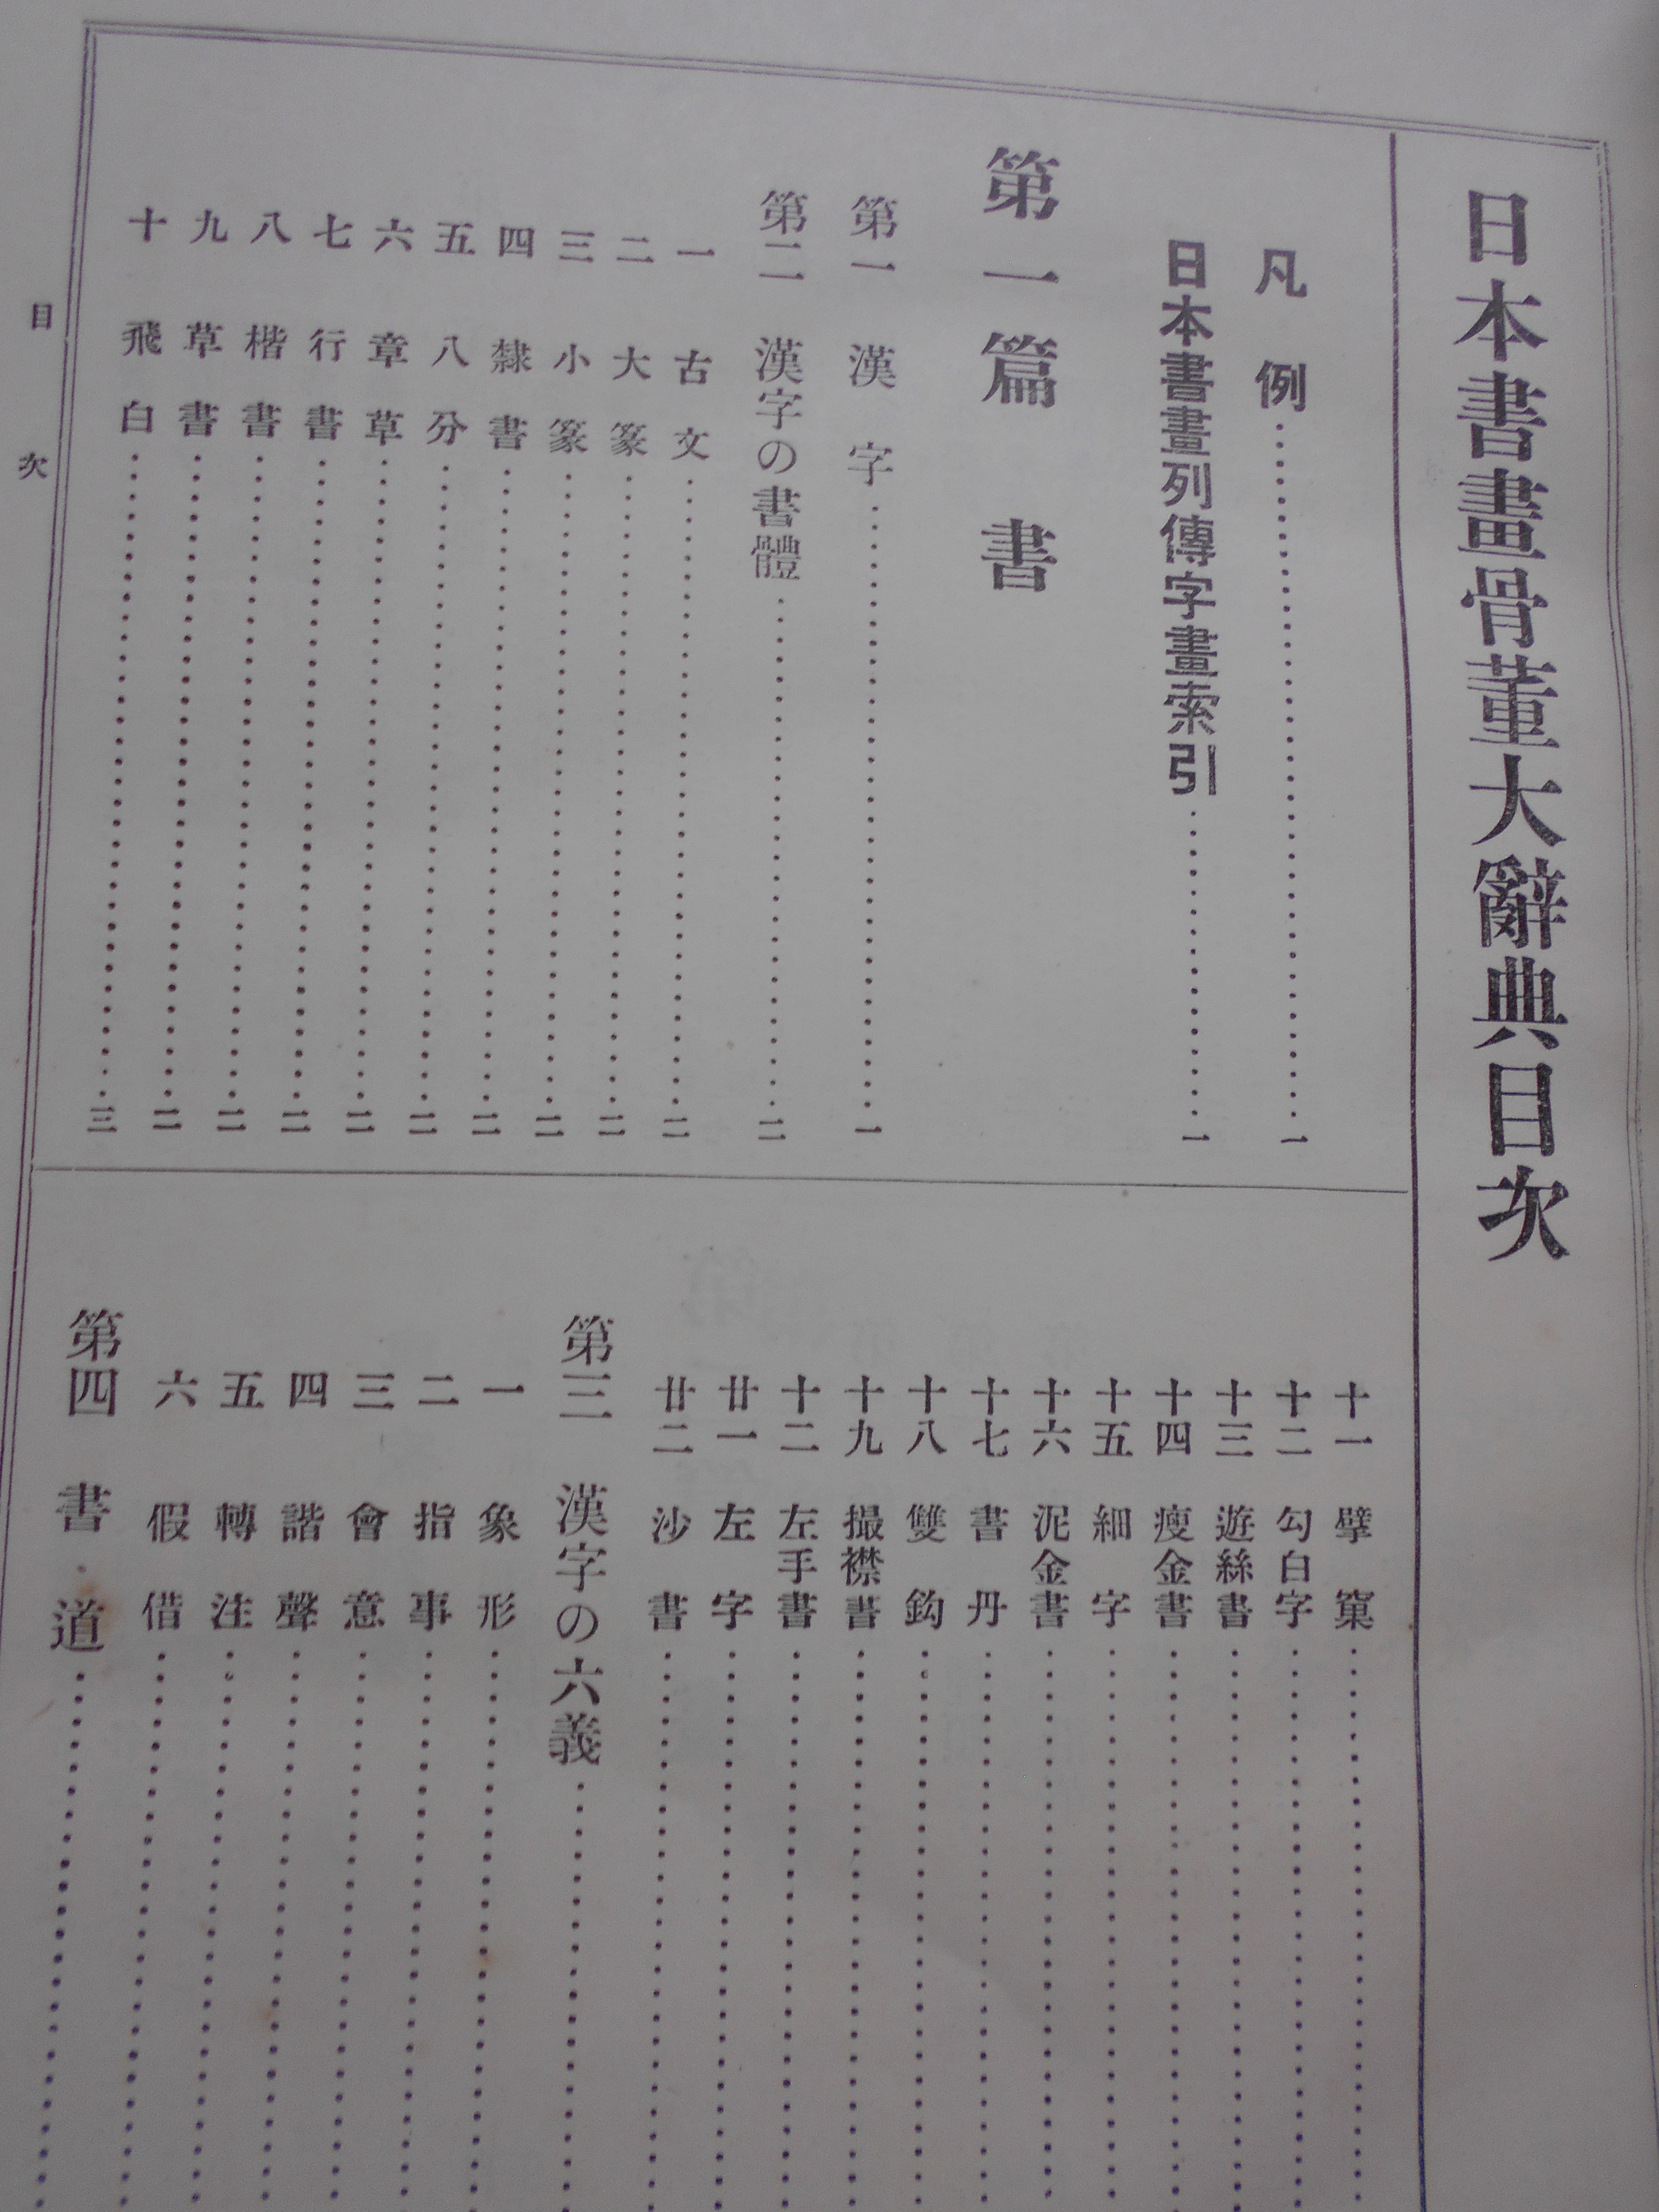 日本書畫骨董大辭典目次
凡例……一
日本書畫列傳字畫索引……一
第一篇 書
第一 漢字……一
第二 漢字の書體……二
一 古文……二
二 大篆……二
三 小篆……二
四 隸書……二
五 八分……二
六 章草……二
七 行書……二
八 楷書……二
九 草書……二
十 飛白……三
十一 擘窠……
十二 勾白字……
十三 遊絲書……
十四 瘦金書……
十五 細字……
十六 泥金書……
十七 書丹……
十八 雙鈎……
十九 撮襟書……
十二 左手書……
廿一 左字……
廿二 沙書……
第三 漢字の六義……
一 象形……
二 指事……
三 會意……
四 諧聲……
五 轉注……
六 假借……
第四 書道……
目次